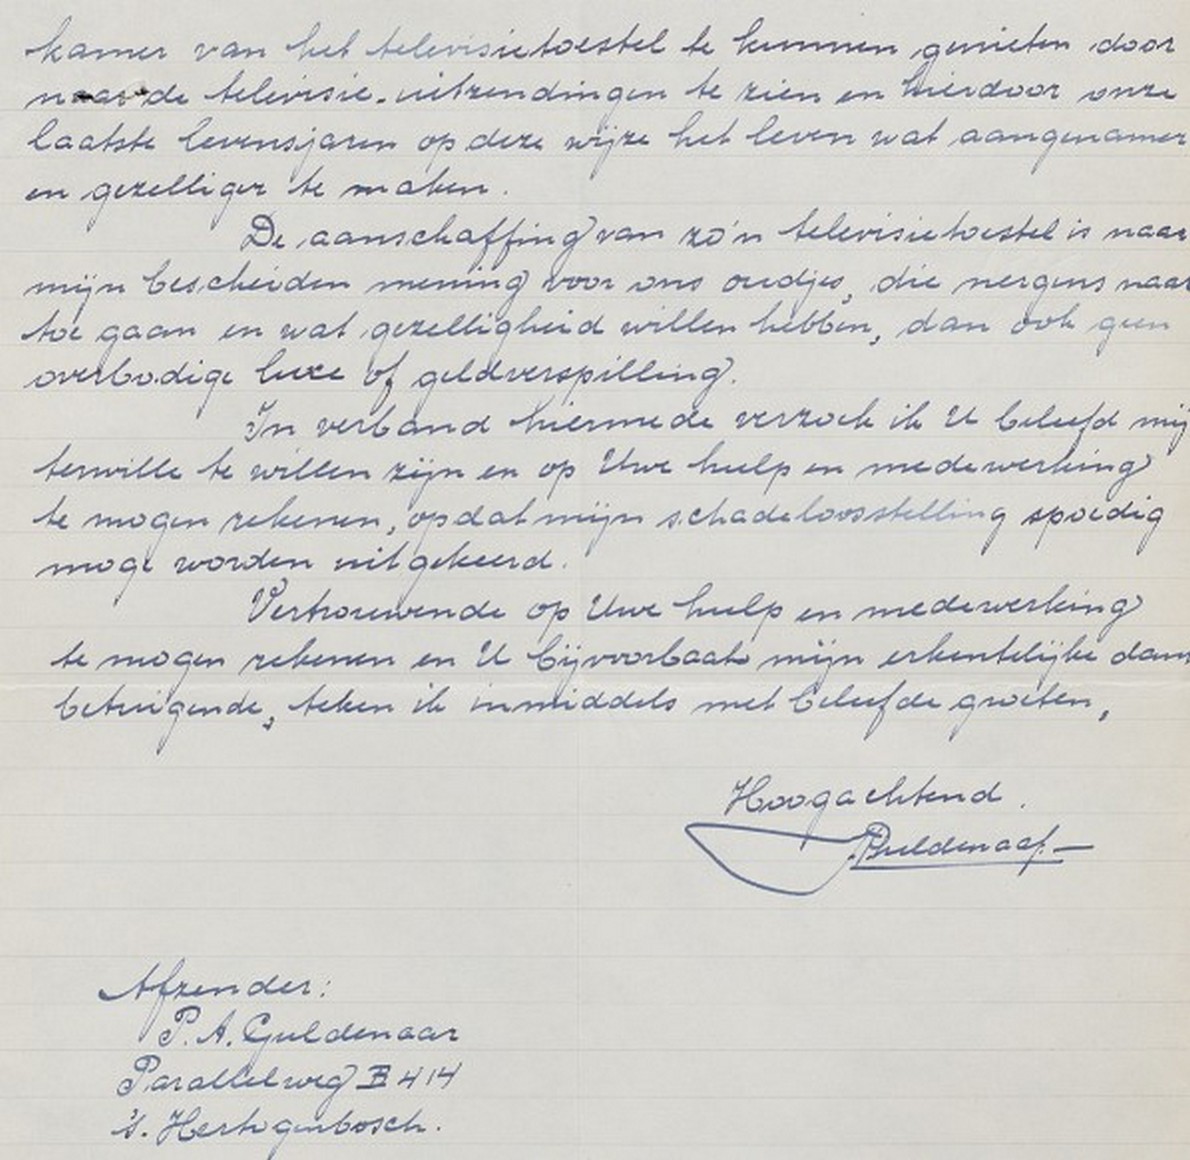 kamer van het televisietoestel te kunnen genieten door
naar de televisie-uitzendingen te zien en hierdoor onze
laatste levensjaren op deze wijze het leven wat aangenamer
en gezelliger te maken.
De aanschaffing van zo'n televisietoestel is naar
mijn bescheiden mening voor ons oudjes, die nergens naar
toe gaan en wat gezelligheid willen hebben, dan ook geen
overbodige luxe of geldverspilling.
In verband hiermede verzoek ik U beleefd mij
terwille te willen zijn en op Uwe hulp en medewerking
te mogen rekenen, opdat mijn schadeloosstelling spoedig
moge worden uitgekeerd.
Vertrouwende op Uwe hulp en medewerking
te mogen rekenen en U bijvoorbaat mijn erkentelijke dank
betuigende, teken ik inmiddels met beleefde groeten,
Hoogachtend.
Afzender:
P.A. Guldenaar
Parallelweg B 414
's. Hertogenbosch.